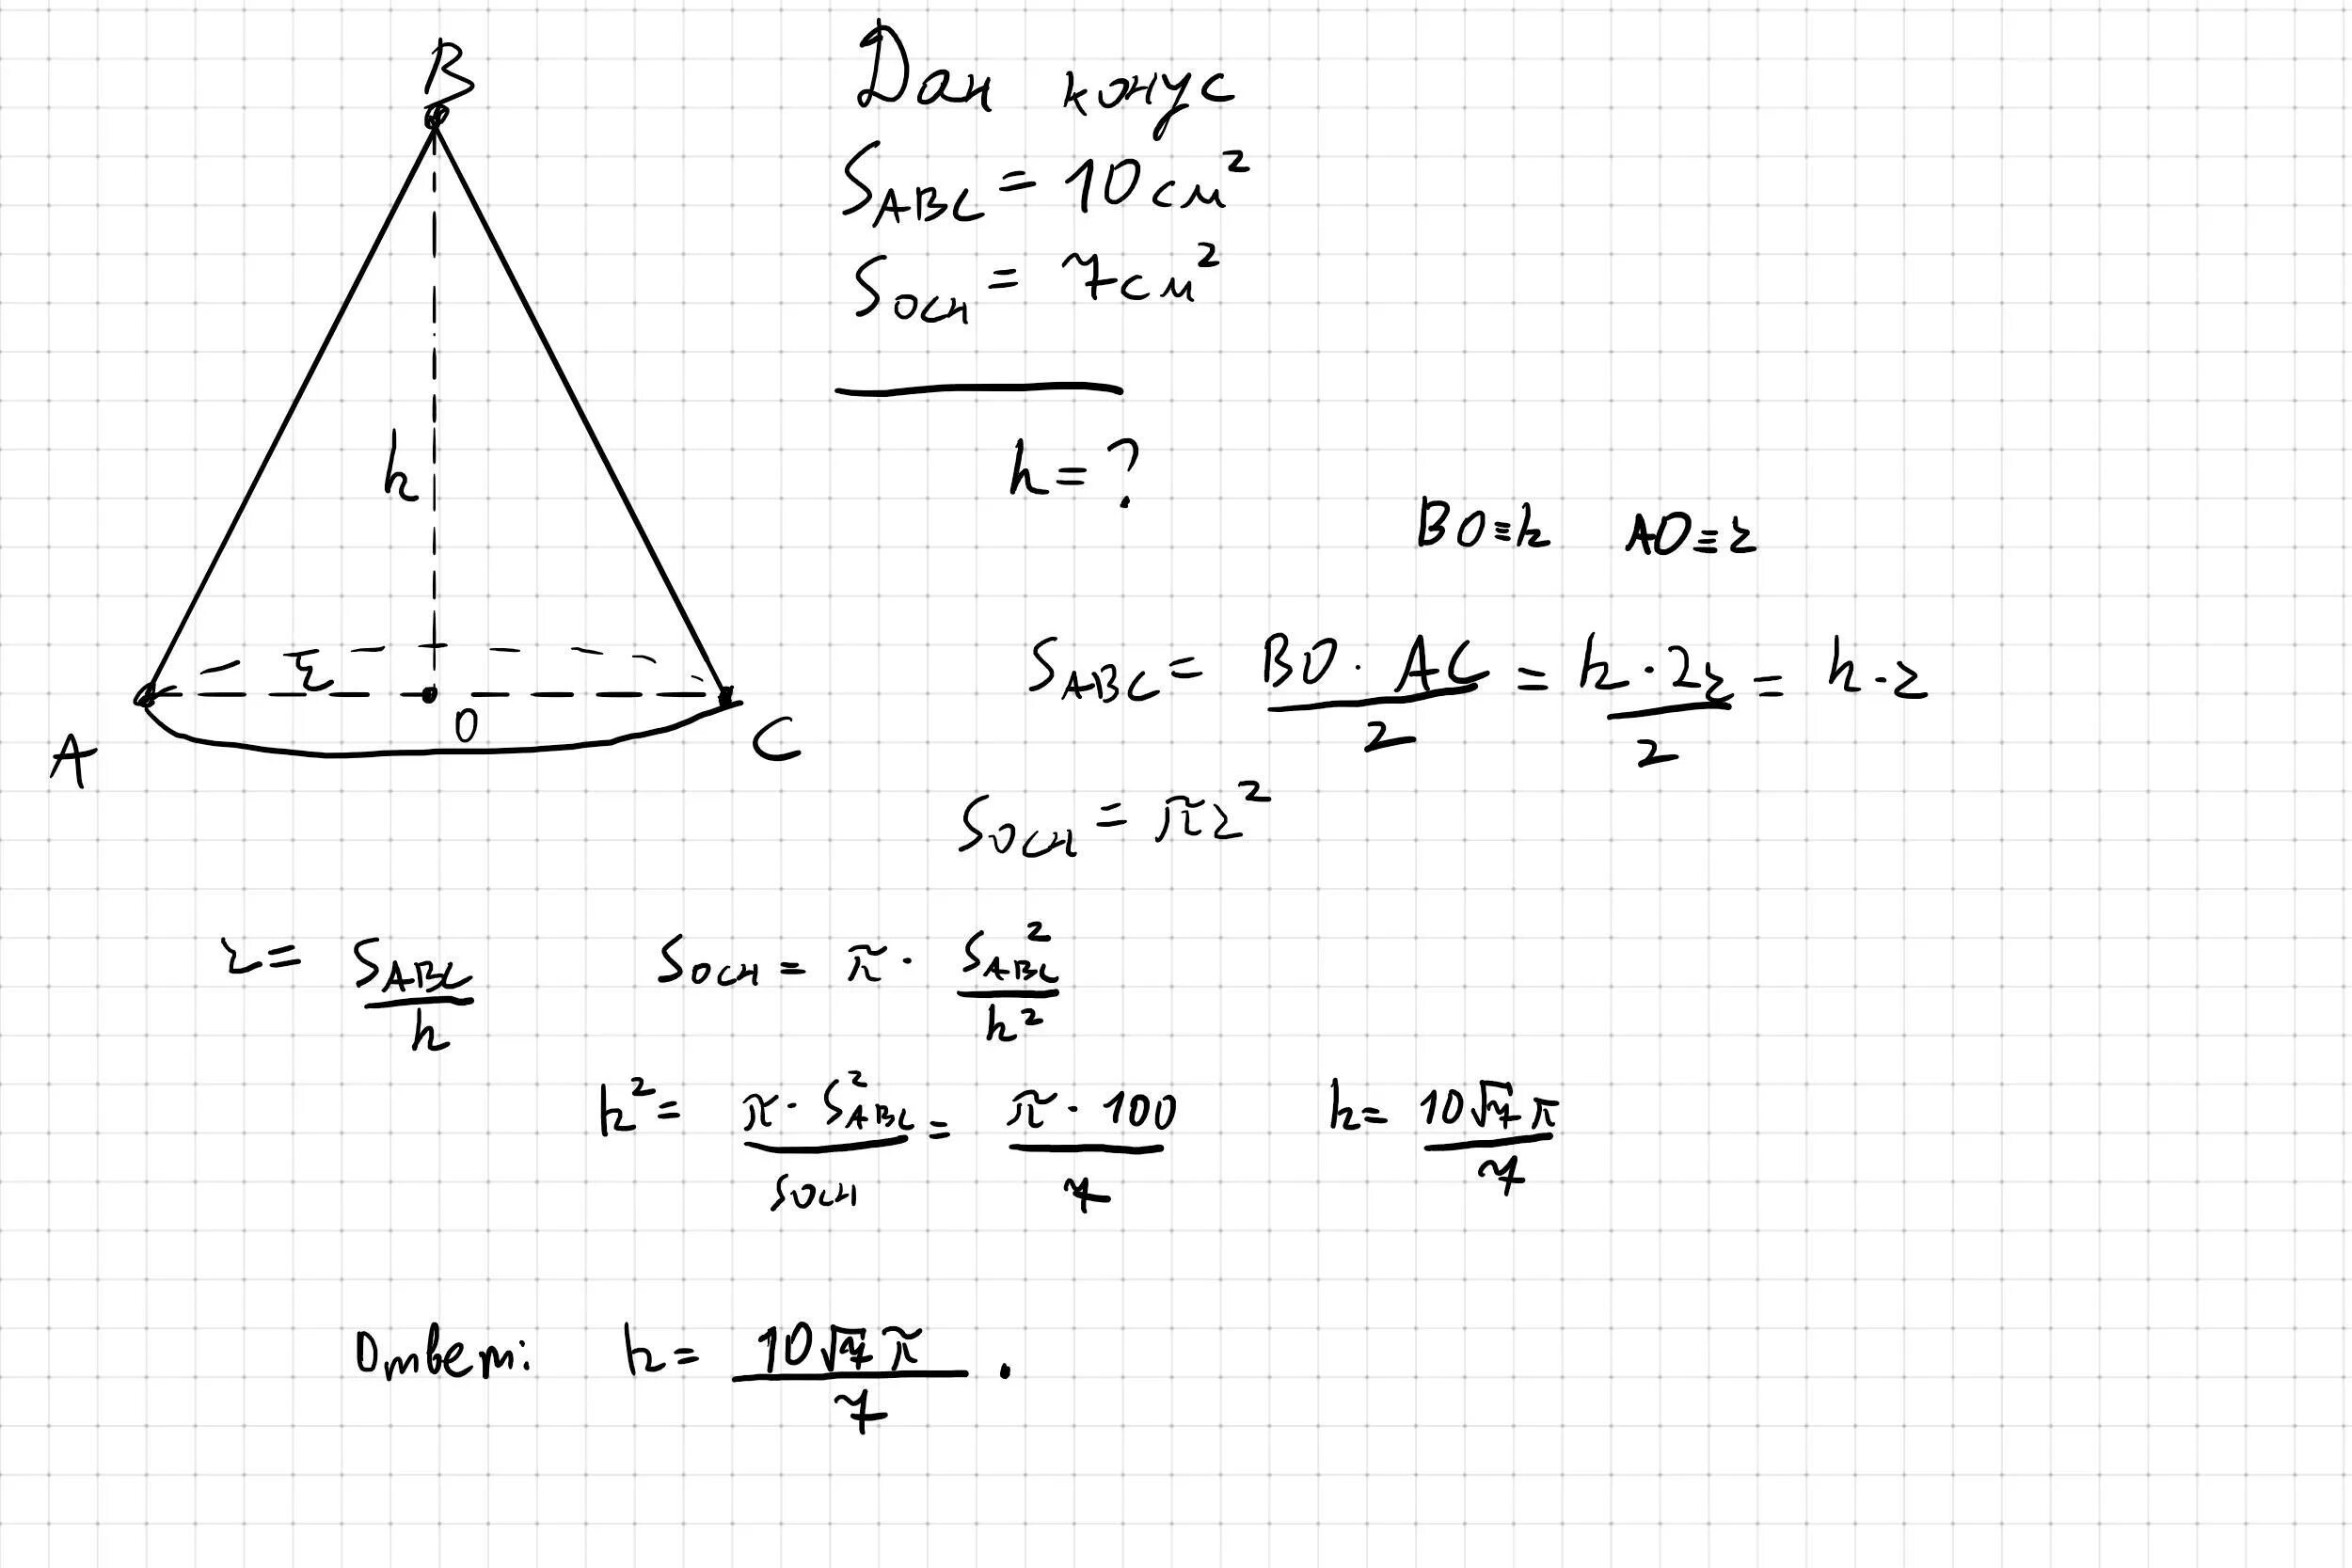 B
Дан конус
S_ABC = 10 см²
S_осн = 7 см²
h = ?
h
BO ≡ h   AO ≡ r
r
O
A
C
S_ABC = (BO · AC)/2 = (h · 2r)/2 = h · r
S_осн = πr²
r = S_ABC/h   S_осн = π · S_ABC²/h²
h² = (π · S²_ABC)/S_осн = (π · 100)/7   h = (10√7π)/7
Ответ: h = (10√7π)/7 .